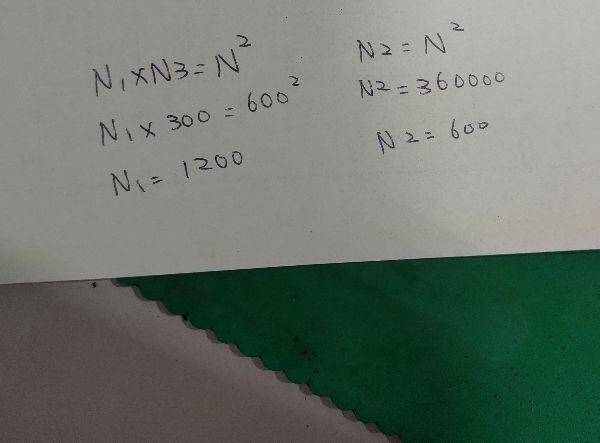 N₁ × N3 = N²
N₁ × 300 = 600²
N₁ = 1200
N2 = N²
N2 = 360000
N2 = 600